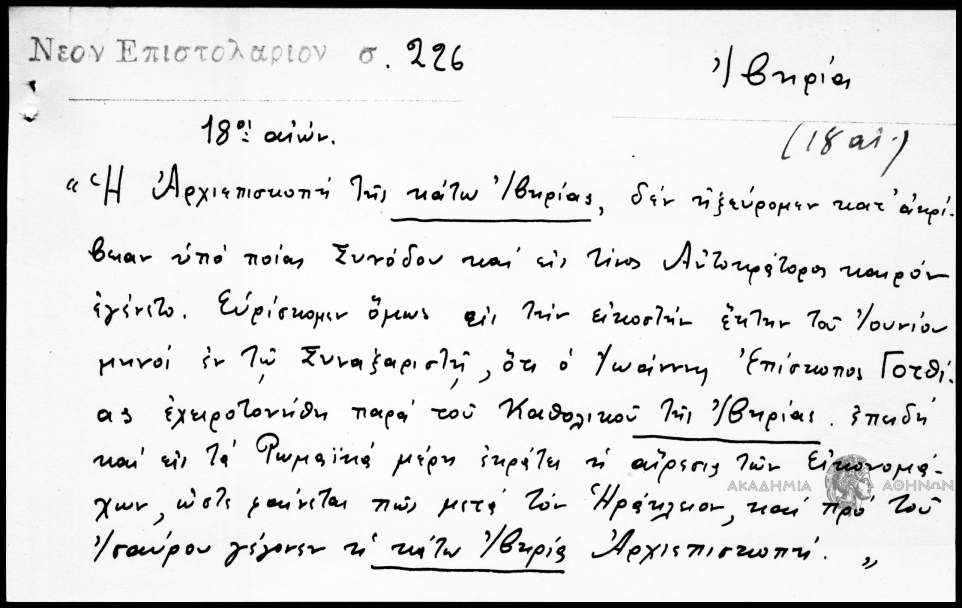 Νεον Επιστολαριον σ. 226
Ἰβηρία
18ος αἰών.
(18 αἰ.)
"Ἡ Ἀρχιεπισκοπή τῆς κάτω Ἰβηρίας, δέν ἠξεύρομεν κατ' ἀκρί-
βειαν ὑπό ποίας Συνόδου καί εἰς τίνος Αὐτοκράτορος καιρόν
ἐγένετο. Εὑρίσκομεν ὅμως εἰς τήν εἰκοστήν ἕκτην τοῦ Ἰουνίου
μηνός ἐν τῷ Συναξαριστῇ, ὅτι ὁ Ἰωάννης Ἐπίσκοπος Γοτθί-
ας ἐχειροτονήθη παρά τοῦ Καθολικοῦ τῆς Ἰβηρίας. ἐπειδή
καί εἰς τά Ρωμαϊκά μέρη ἐκράτει ἡ αἵρεσις τῶν Εἰκονομά-
χων, ὥστε φαίνεται πῶς μετά τόν Ἡράκλειον, καί πρό τοῦ
Ἰσαύρου γέγονεν ἡ κάτω Ἰβηρία Ἀρχιεπισκοπή."
ΑΚΑΔΗΜΙΑ ΑΘΗΝΩΝ